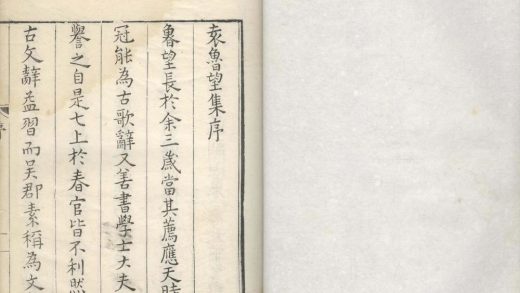 袁魯望集序
魯望長於余三歲當其薦應天時
冠能為古歌辭又善書學士大夫
譽之自是七上於春官皆不利然
古文辭益習而吳郡素稱為文
序